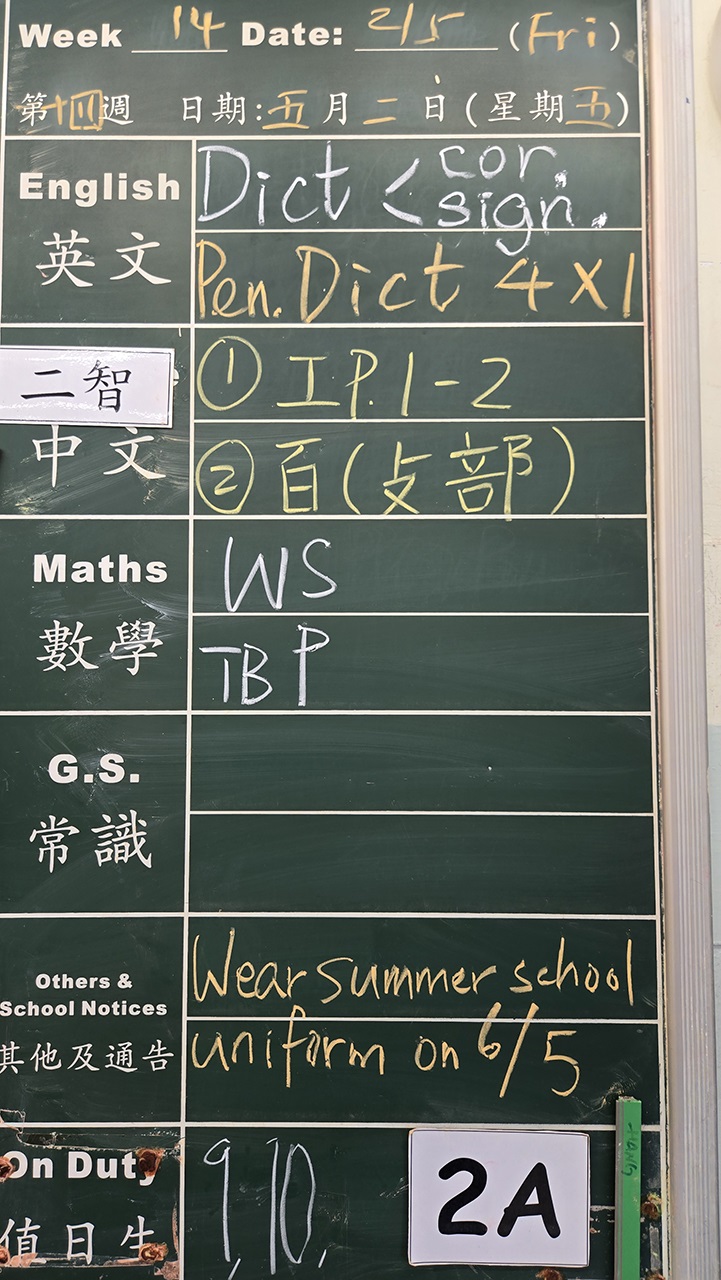 Week 14 Date: 2/5 (Fri)
第十四週 日期:五月二日(星期五)
English
英文
Dict < cor.
sign.
Pen. Dict 4×1
二智
中文
① 工 P.1-2
② 百(攴部)
Maths
數學
WS
TB P
G.S.
常識
Others &
School Notices
其他及通告
Wear summer school
uniform on 6/5
On Duty
值日生
9, 10,
2A